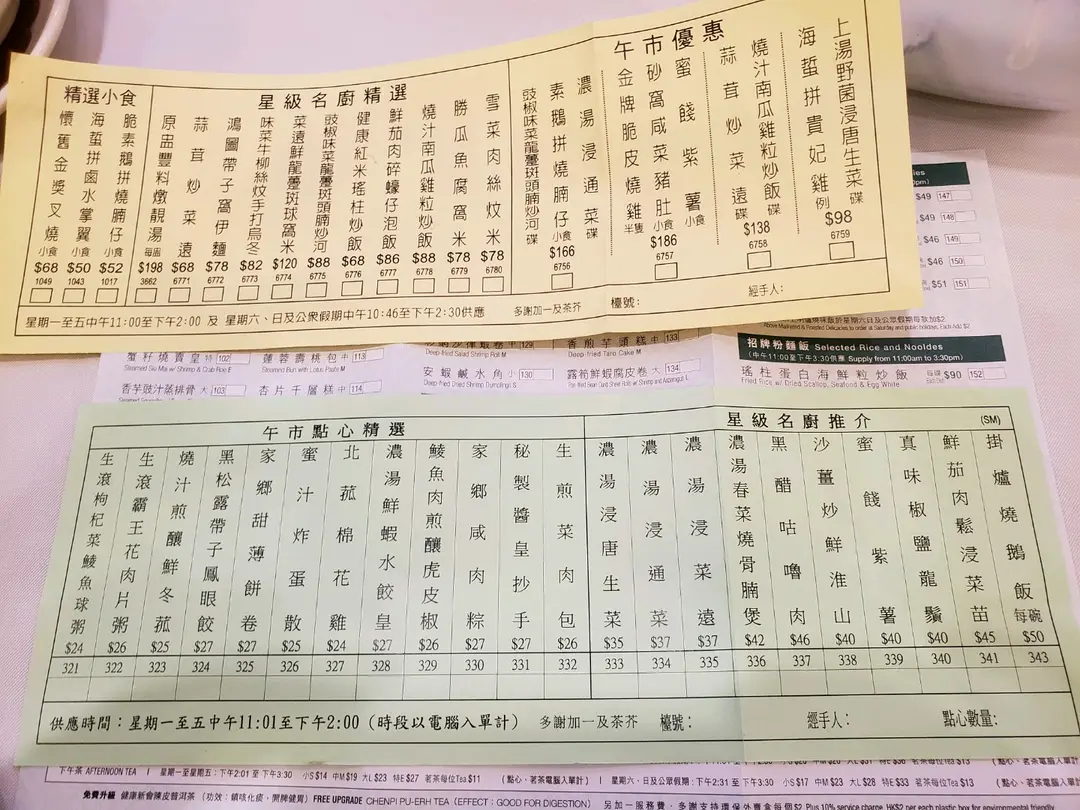 精選小食
懷舊金漿叉燒 小食 $68 1049
海蜇拼鹵水掌翼 小食 $50 1043
脆素鵝拼燒腩仔 小食 $52 1017
星級名廚精選
原盅豐料燉靚湯 每盅 $198 3662
蒜茸炒菜遠 $68 6771
鴻圖帶子窩伊麵 $78 6772
味菜牛柳絲炆手打烏冬 $82 6773
菜遠鮮龍躉斑球窩米 $120 6774
豉椒味菜龍躉斑頭腩炒河 $88 6775
健康紅米瑤柱炒飯 $68 6776
鮮茄肉碎蠔仔泡飯 $86 6777
燒汁南瓜雞粒炒飯 $88 6778
勝瓜魚腐窩米 $78 6779
雪菜肉絲炆米 $78 6780
午市優惠
豉椒味菜龍躉斑頭腩炒河 碟
素鵝拼燒腩仔 小食
濃湯浸通菜 碟
$166
6756
金牌脆皮燒雞 半隻
砂窩咸菜豬肚 小食
蜜餞紫薯 小食
$186
6757
蒜茸炒菜遠 碟
燒汁南瓜雞粒炒飯 碟
$138
6758
海蜇拼貴妃雞 例
上湯野菌浸唐生菜 碟
$98
6759
星期一至五中午11:00至下午2:00 及 星期六、日及公眾假期中午10:46至下午2:30供應 多謝加一及茶芥 檯號: 經手人:
$49 147
$49 148
$46 149
$46 150
$51 151
蟹籽燒賣皇 特 102
Steamed Siu Mai w/ Shrimp & Crab Roe E
蓮蓉壽桃包 中 113
Steamed Bun with Lotus Paste M
129
Deep-fried Salad Shrimp Roll M
香煎芋頭糕 中 133
Deep-fried Taro Cake M
招牌粉麵飯 Selected Rice and Nooldes
(中午11:00至下午3:30供應 Supply from 11:00am to 3:30pm)
香芋豉汁蒸排骨 大 103
杏片千層糕 中 114
安蝦鹹水角 小 130
Deep-fried Dried Shrimp Dumplings S
露筍鮮蝦腐皮卷 大 134
瑤柱蛋白海鮮粒炒飯 每碟 $90 152
Fried Rice w/ Dried Scallop, Seafood & Egg White
午市點心精選
生滾枸杞菜鯪魚球粥 $24 321
生滾霸王花肉片粥 $26 322
燒汁煎釀鮮冬菰 $25 323
黑松露帶子鳳眼餃 $27 324
家鄉甜薄餅卷 $27 325
蜜汁炸蛋散 $25 326
北菰棉花雞 $24 327
濃湯鮮蝦水餃皇 $27 328
鯪魚肉煎釀虎皮椒 $27 329
家鄉咸肉粽 $27 330
秘製醬皇抄手 $27 331
生煎菜肉包 $26 332
星級名廚推介 (SM)
濃湯浸唐生菜 $35 333
濃湯浸通菜 $37 334
濃湯浸菜遠 $37 335
濃湯春菜燒骨腩煲 $42 336
黑醋咕嚕肉 $46 337
沙薑炒鮮淮山 $40 338
蜜餞紫薯 $40 339
真味椒鹽龍鬚 $40 340
鮮茄肉鬆浸菜苗 $45 341
掛爐燒鵝飯 每碗 $50 343
供應時間：星期一至五中午11:01至下午2:00 (時段以電腦入單計) 多謝加一及茶芥 檯號： 經手人： 點心數量：
下午茶 AFTERNOON TEA | 星期一至星期五：下午2:01 至 下午3:30 小S $14 中M $19 大L $23 特E $27 茗茶每位Tea $11 (點心、茗茶電腦入單計) | 星期六、日及公眾假期：下午2:31 至 下午3:30 小S $17 中M $23 大L $28 特E $33 茗茶每位Tea $13 (點心、茗茶電腦入單計)
免費升級 健康新會陳皮普洱茶 (功效：鎮咳化痰，開脾健胃) FREE UPGRADE CHENPI PU-ERH TEA (EFFECT : GOOD FOR DIGESTION) 另加一服務費，多謝支持環保外賣盒每個$2 Plus 10% service charge, HK$2 per each plastic box for environmental friendly